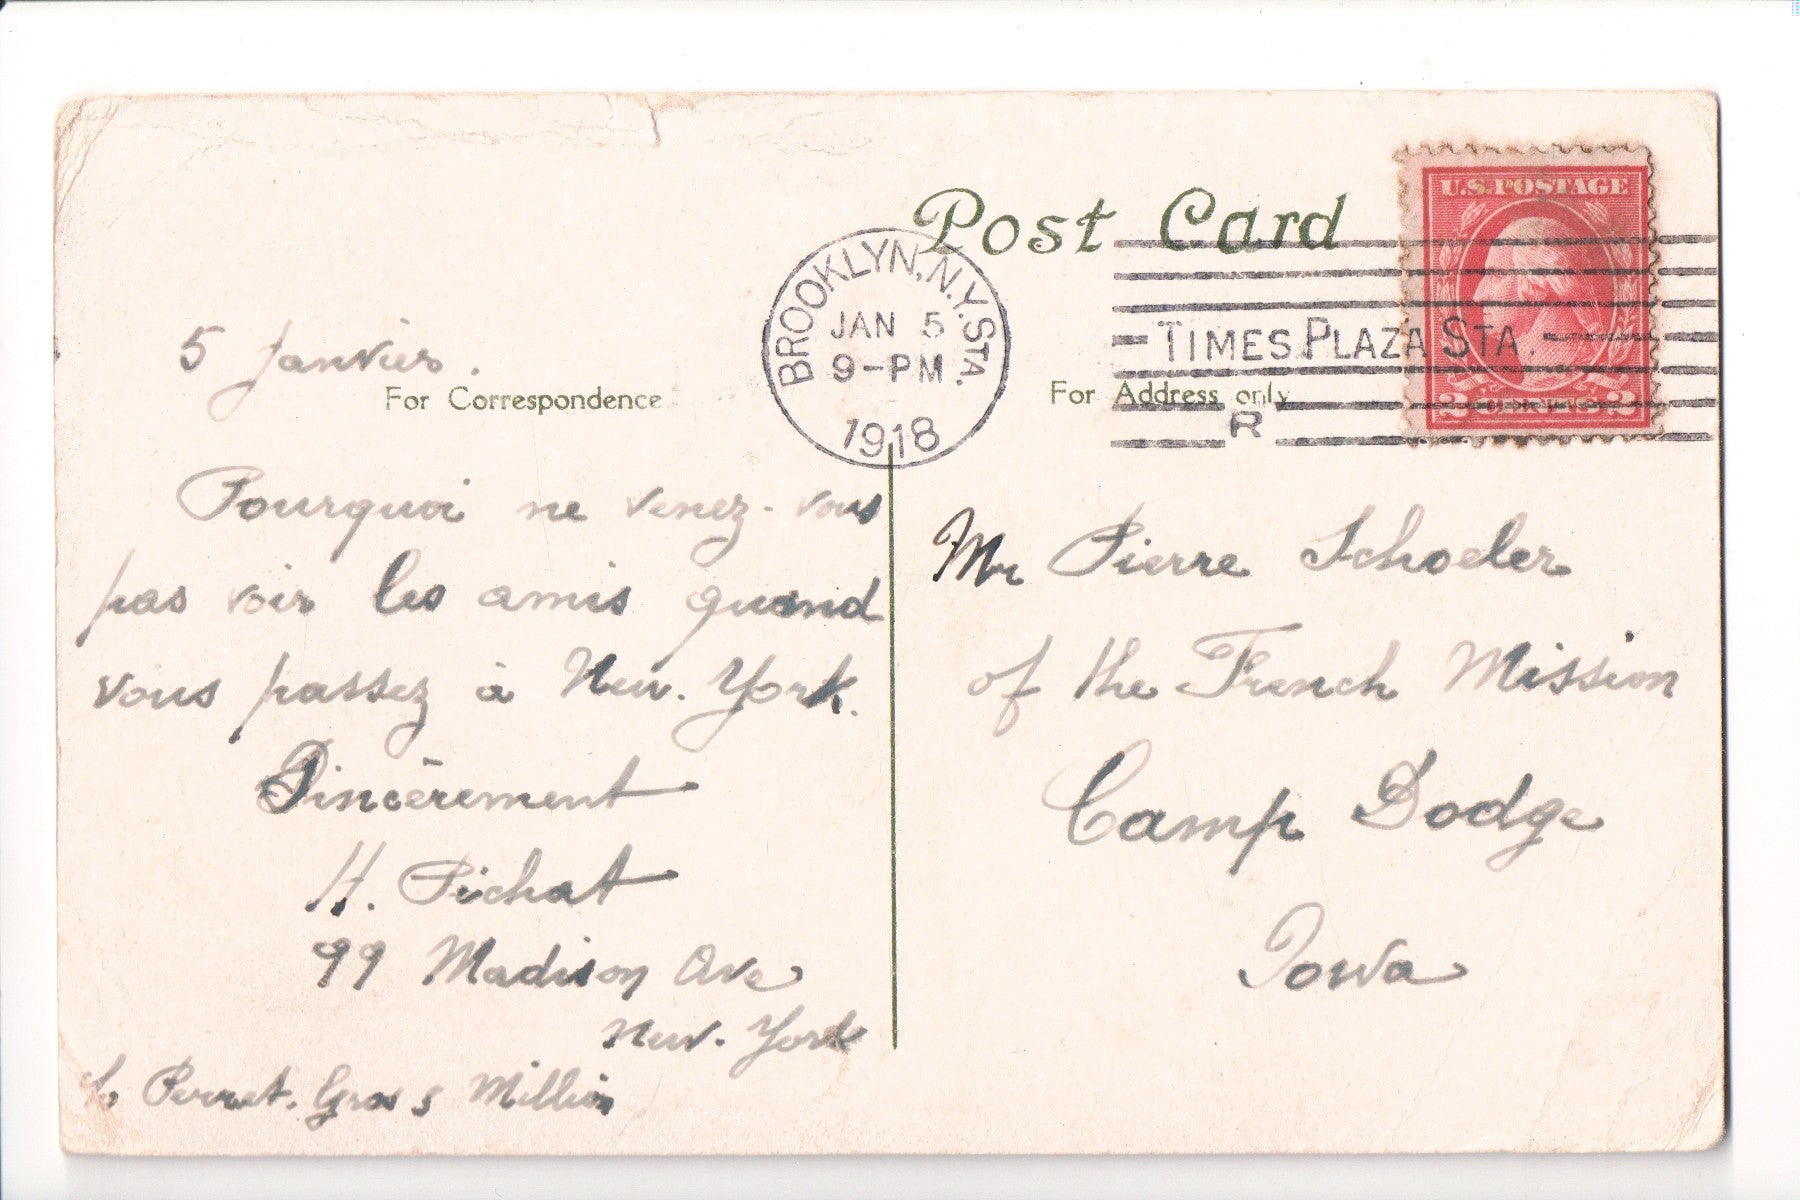 Post Card
U.S. POSTAGE
BROOKLYN, N.Y. STA.
JAN 5
9-PM
1918
TIMES PLAZA STA.
R
2 CENTS 2
For Correspondence
For Address only
5 Janvier.
Pourquoi ne venez-vous
pas voir les amis quand
vous passez à New-York.
Sincèrement
H. Pichat
99 Madison Ave
New-York
Perret. Gros &
Mr Pierre Schoeler
of the French Mission
Camp Dodge
Iowa